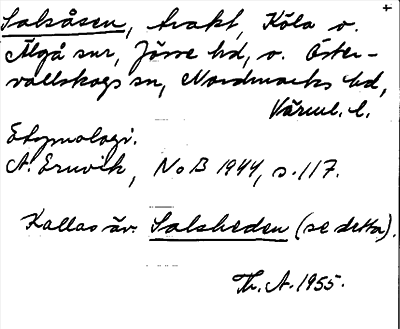 Salsåsen, trakt, Köla o.
Älgå snr, Jösse hd, o. Öster-
vallskogs sn, Nordmarks hd,
Värml. l.
Etymologi.
A. Ernvik, NoB 1944, s. 117.
Kallas äv. Salsheden (se detta).
Th. A. 1955.